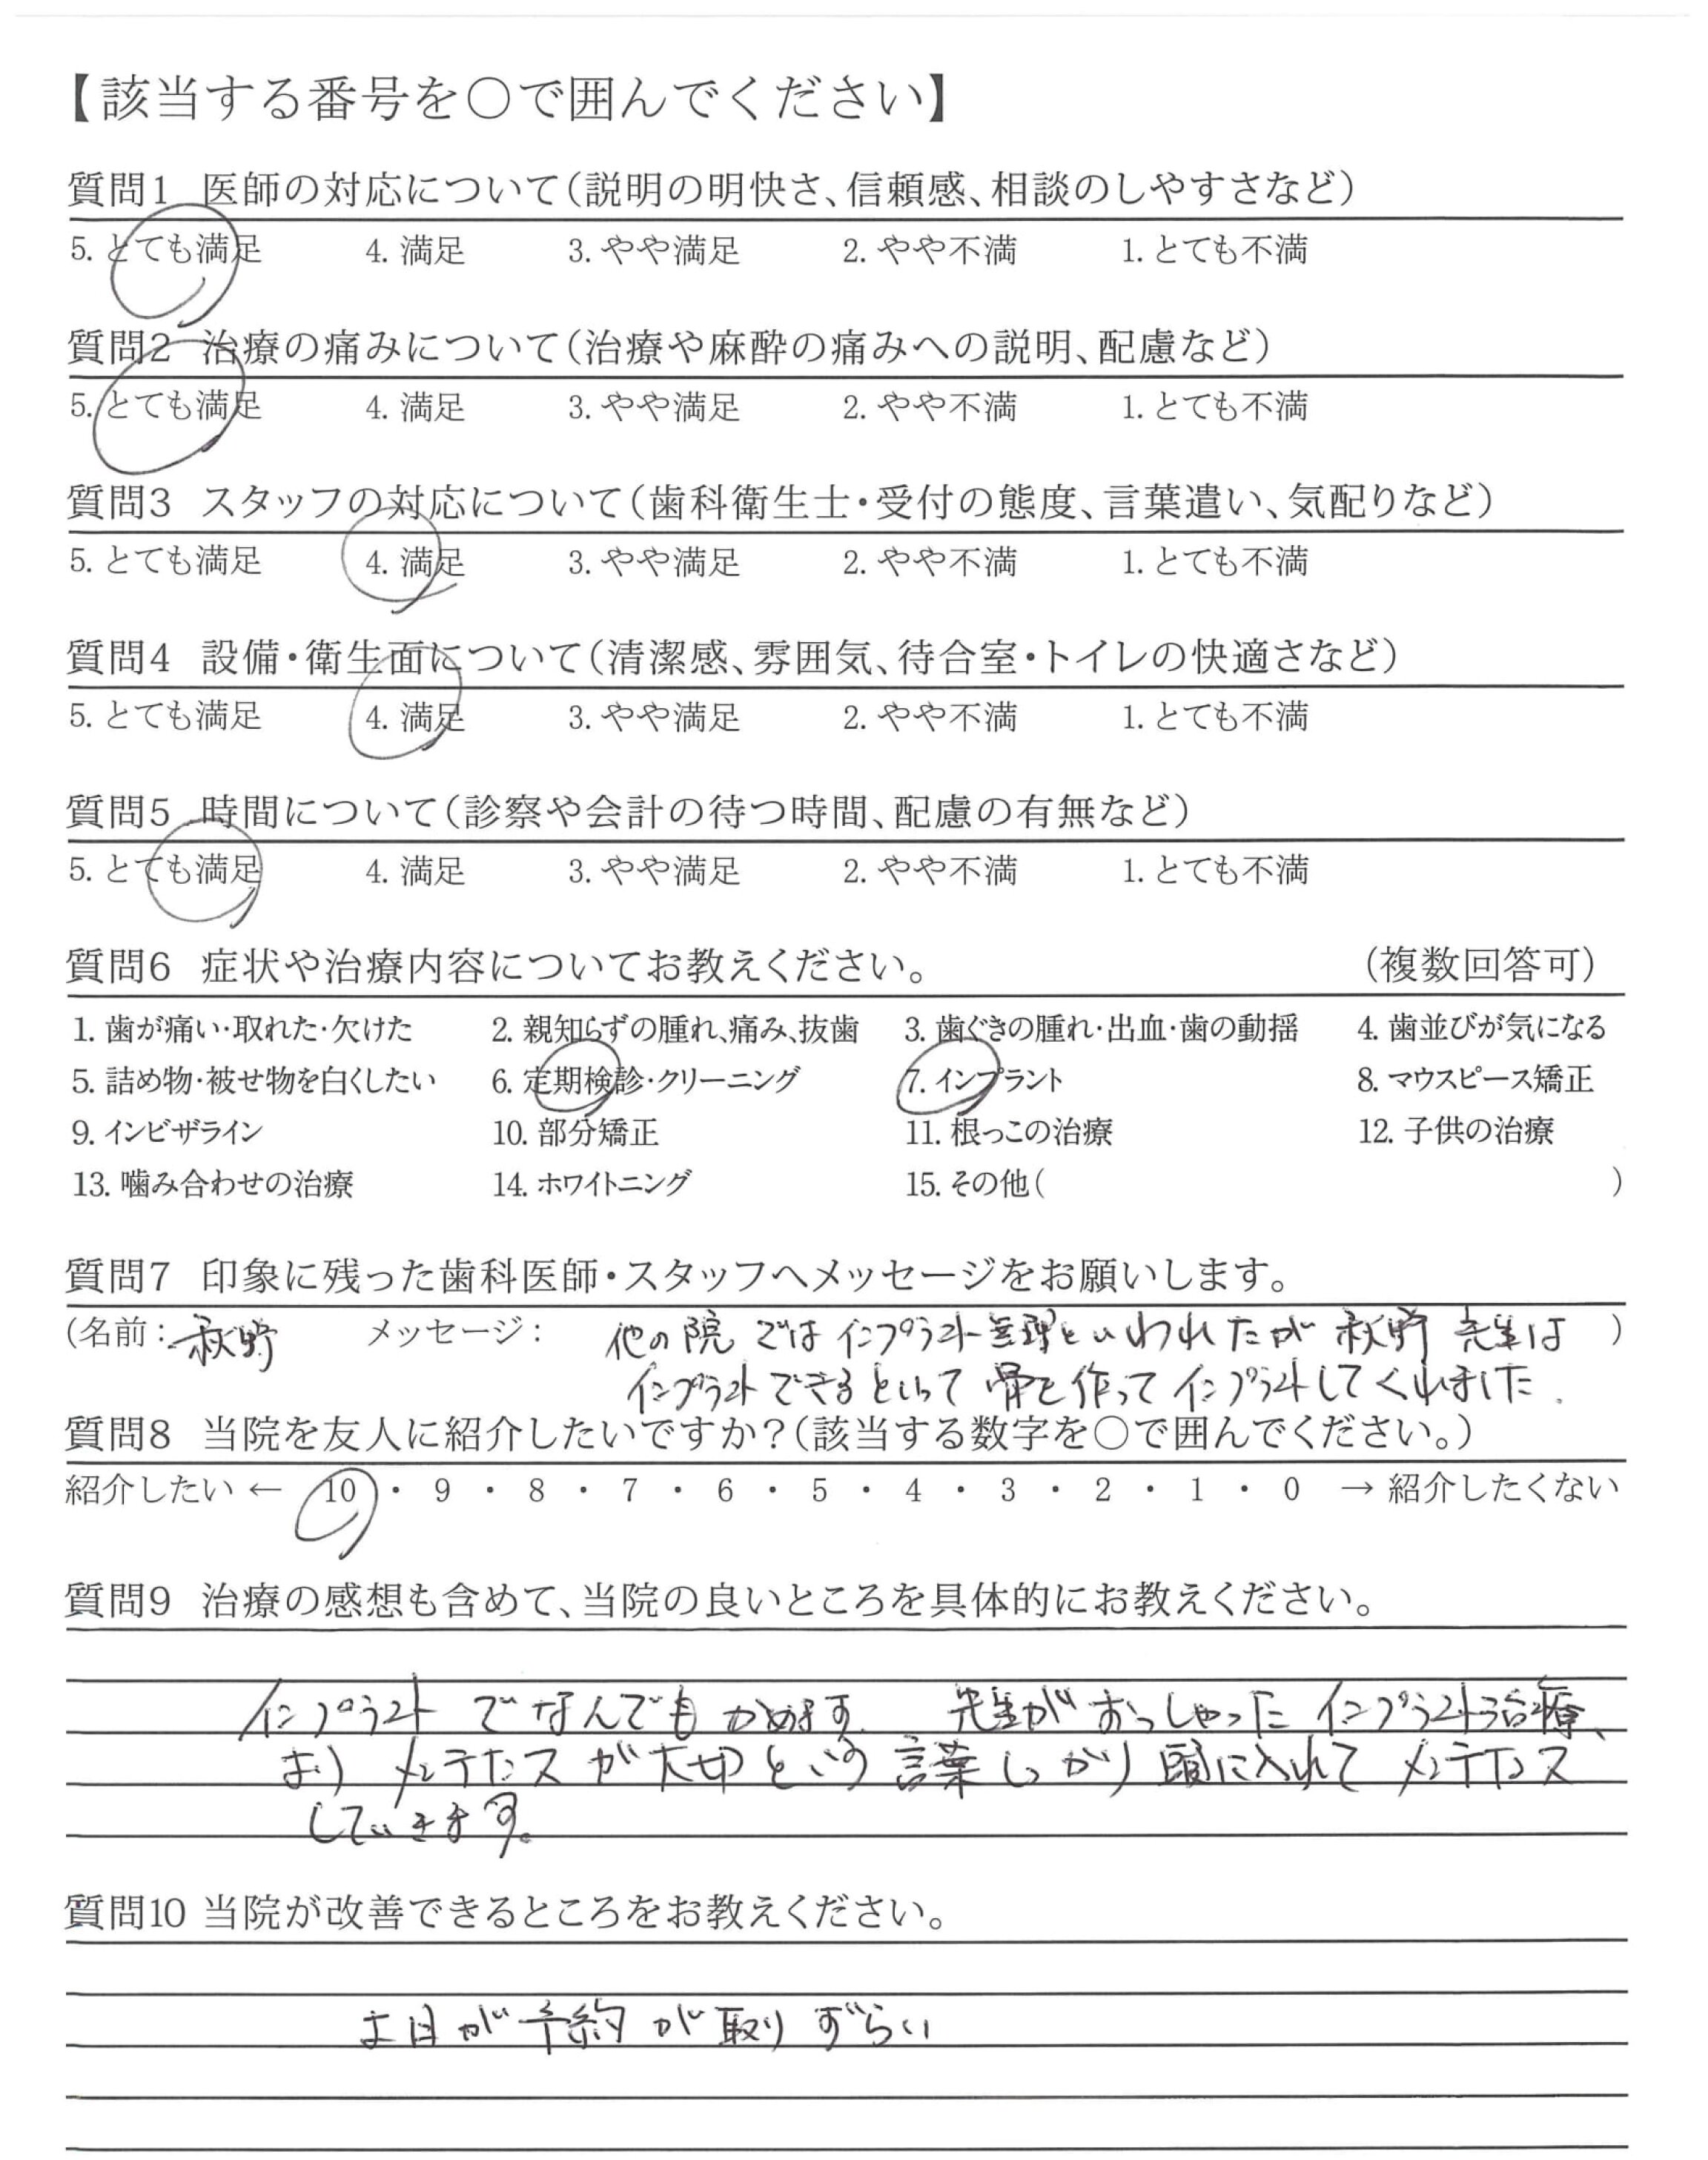 【該当する番号を○で囲んでください】
質問1 医師の対応について(説明の明快さ、信頼感、相談のしやすさなど)
5. とても満足 4. 満足 3. やや満足 2. やや不満 1. とても不満
質問2 治療の痛みについて(治療や麻酔の痛みへの説明、配慮など)
5. とても満足 4. 満足 3. やや満足 2. やや不満 1. とても不満
質問3 スタッフの対応について(歯科衛生士・受付の態度、言葉遣い、気配りなど)
5. とても満足 4. 満足 3. やや満足 2. やや不満 1. とても不満
質問4 設備・衛生面について(清潔感、雰囲気、待合室・トイレの快適さなど)
5. とても満足 4. 満足 3. やや満足 2. やや不満 1. とても不満
質問5 時間について(診察や会計の待つ時間、配慮の有無など)
5. とても満足 4. 満足 3. やや満足 2. やや不満 1. とても不満
質問6 症状や治療内容についてお教えください。 (複数回答可)
1. 歯が痛い・取れた・欠けた 2. 親知らずの腫れ、痛み、抜歯 3. 歯ぐきの腫れ・出血・歯の動揺 4. 歯並びが気になる
5. 詰め物・被せ物を白くしたい 6. 定期検診・クリーニング 7. インプラント 8. マウスピース矯正
9. インビザライン 10. 部分矯正 11. 根っこの治療 12. 子供の治療
13. 噛み合わせの治療 14. ホワイトニング 15. その他( )
質問7 印象に残った歯科医師・スタッフへメッセージをお願いします。
(名前: 秋野 メッセージ: 他の院ではインプラント無理といわれたが 秋野先生は )
インプラントできるといって 骨を作って インプラントしてくれました.
質問8 当院を友人に紹介したいですか?(該当する数字を○で囲んでください。)
紹介したい ← 10 ・ 9 ・ 8 ・ 7 ・ 6 ・ 5 ・ 4 ・ 3 ・ 2 ・ 1 ・ 0 → 紹介したくない
質問9 治療の感想も含めて、当院の良いところを具体的にお教えください。
インプラントでなんでもかめます 先生がおっしゃった インプラント治療、
より メンテナンスが大切という言葉しっかり頭に入れて メンテナンス
していきます。
質問10 当院が改善できるところをお教えください。
土日が予約が取りずらい